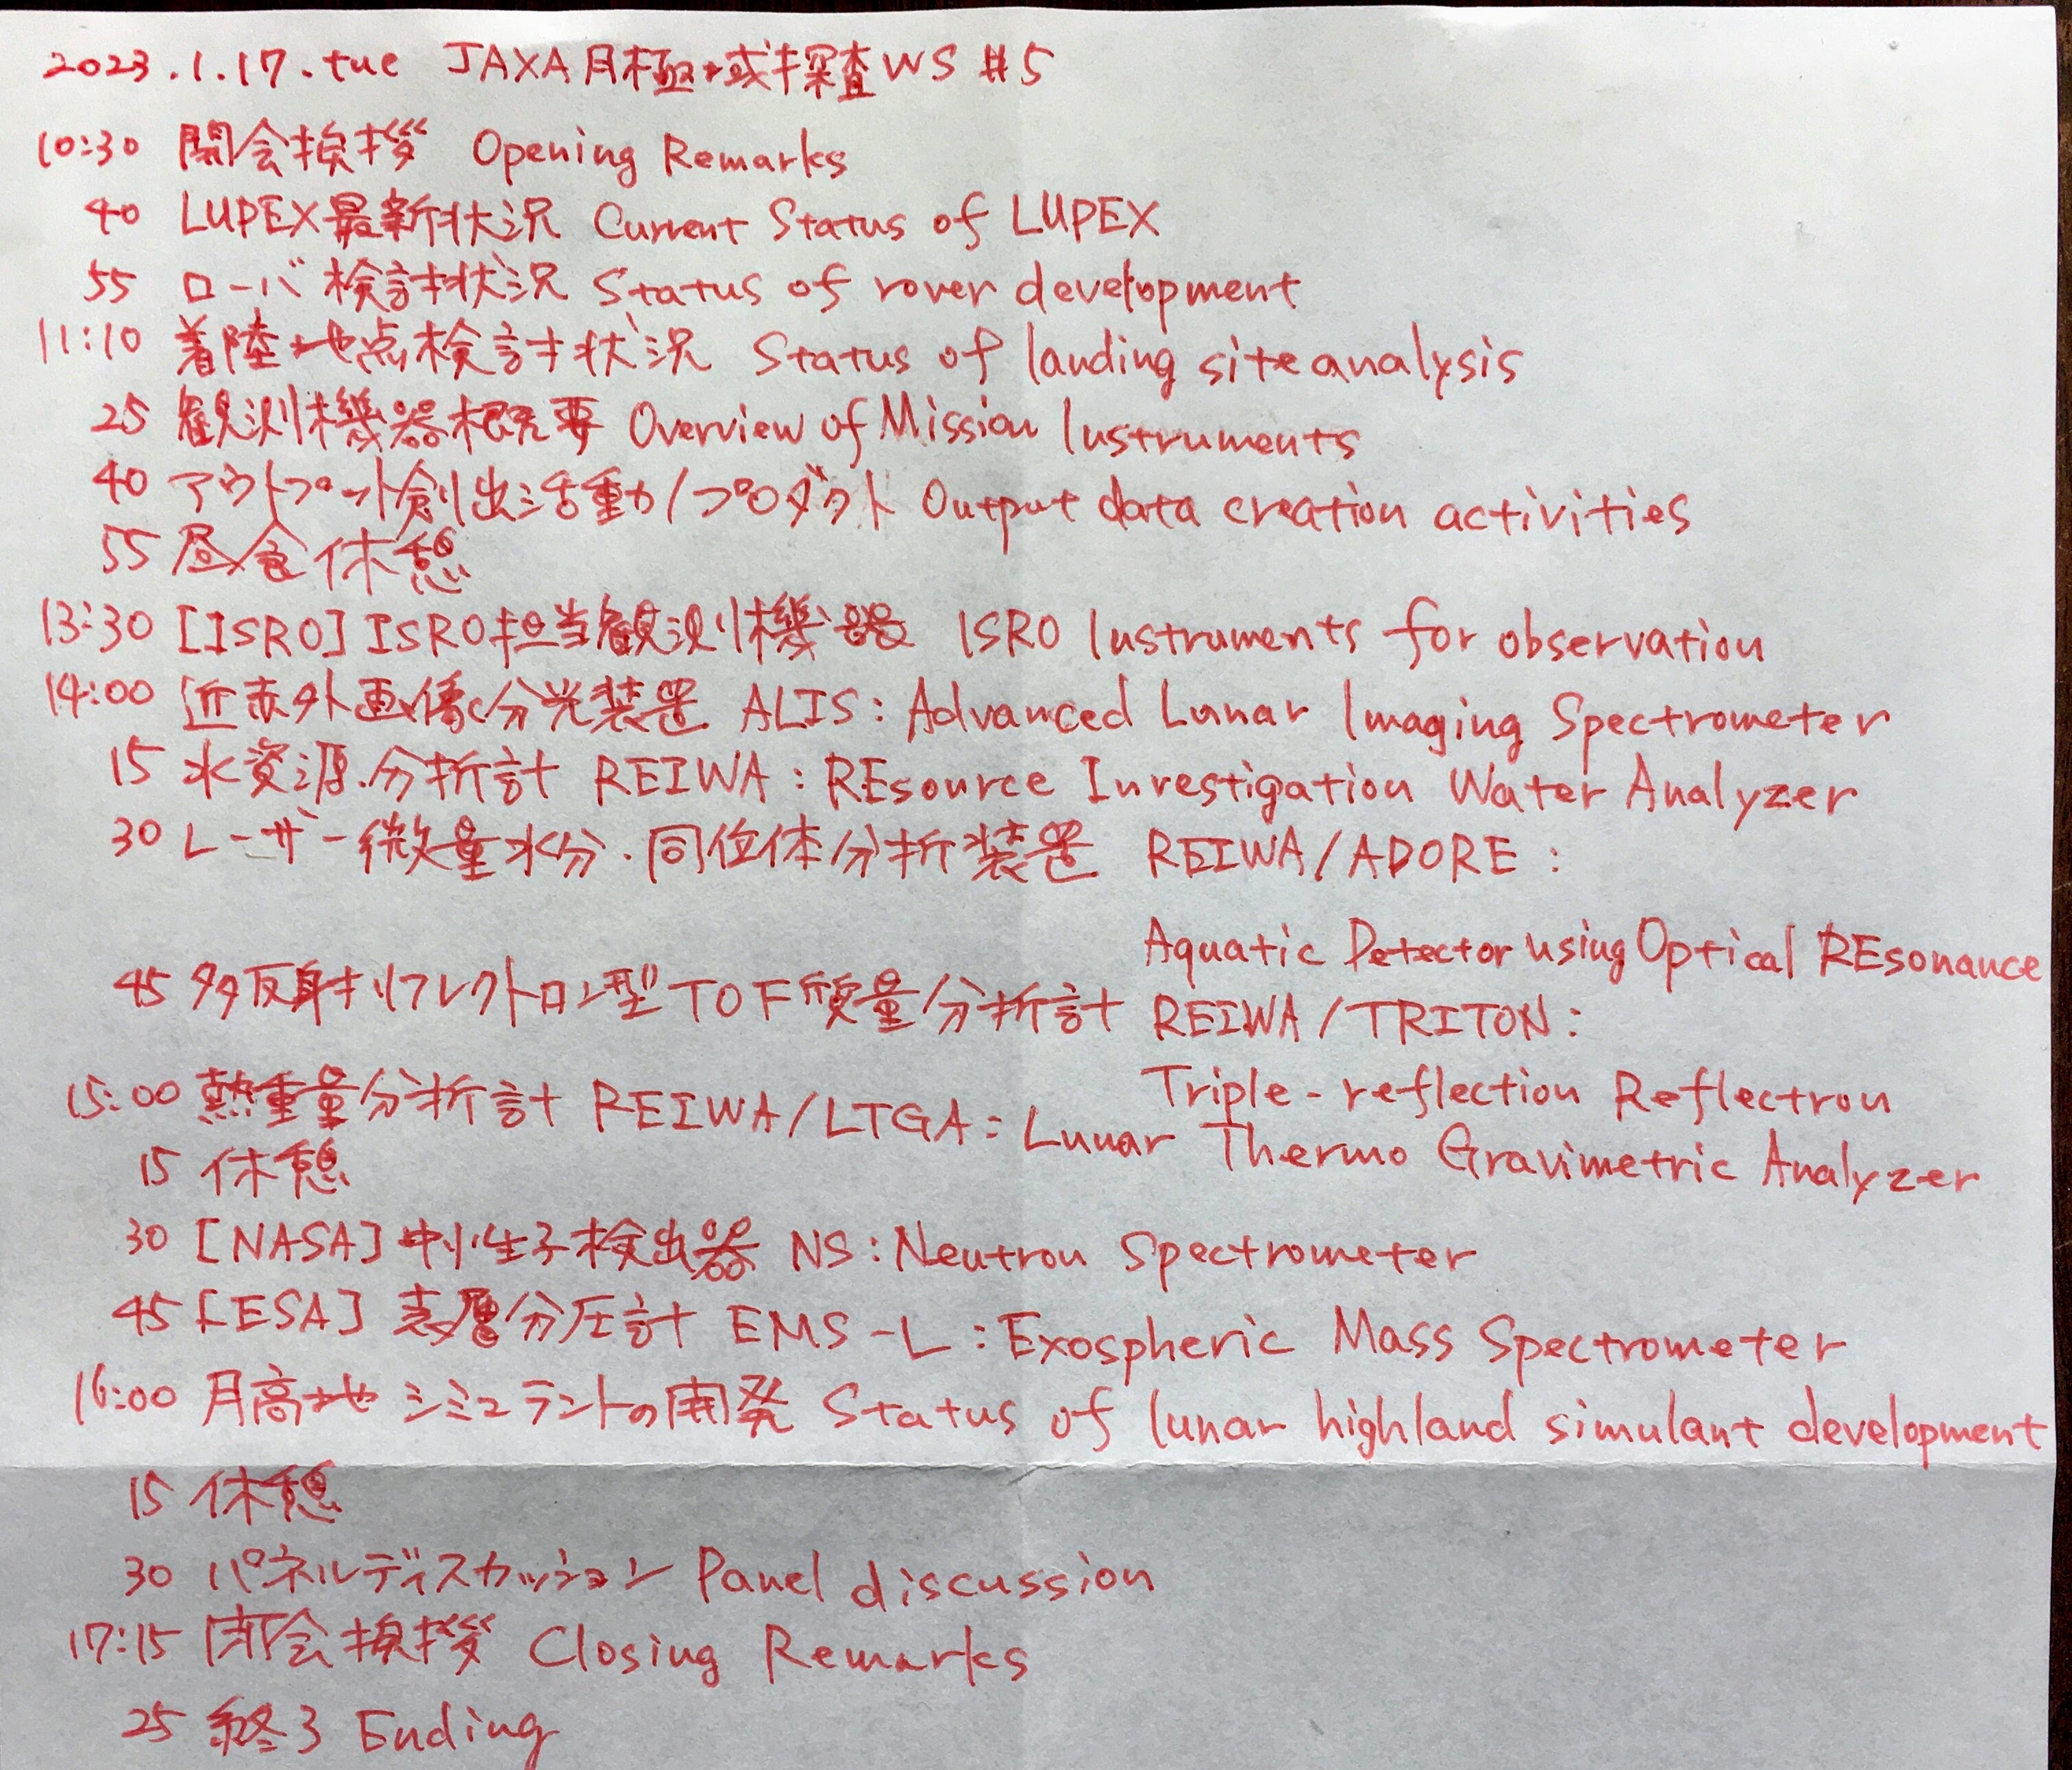 2023.1.17.tue JAXA月極域探査WS #5
10:30 開会挨拶 Opening Remarks
40 LUPEX最新状況 Current Status of LUPEX
55 ローバ検討状況 Status of rover development
11:10 着陸地点検討状況 Status of landing site analysis
25 観測機器概要 Overview of Mission Instruments
40 アウトプット創出活動/プロダクト Output data creation activities
55 昼食休憩
13:30 [ISRO] ISRO担当観測機器 ISRO Instruments for observation
14:00 近赤外画像分光装置 ALIS: Advanced Lunar Imaging Spectrometer
15 水資源分析計 REIWA: REsource Investigation Water Analyzer
30 レーザー微量水分・同位体分析装置 REIWA/ADORE:
Aquatic Detector using Optical REsonance
45 多反射リフレクトロン型TOF質量分析計 REIWA/TRITON:
Triple-reflection Reflectron
15:00 熱重量分析計 REIWA/LTGA: Lunar Thermo Gravimetric Analyzer
15 休憩
30 [NASA] 中性子検出器 NS: Neutron Spectrometer
45 [ESA] 表層分圧計 EMS-L: Exospheric Mass Spectrometer
16:00 月高地シミュラントの開発 Status of lunar highland simulant development
15 休憩
30 パネルディスカッション Panel discussion
17:15 閉会挨拶 Closing Remarks
25 終了 Ending